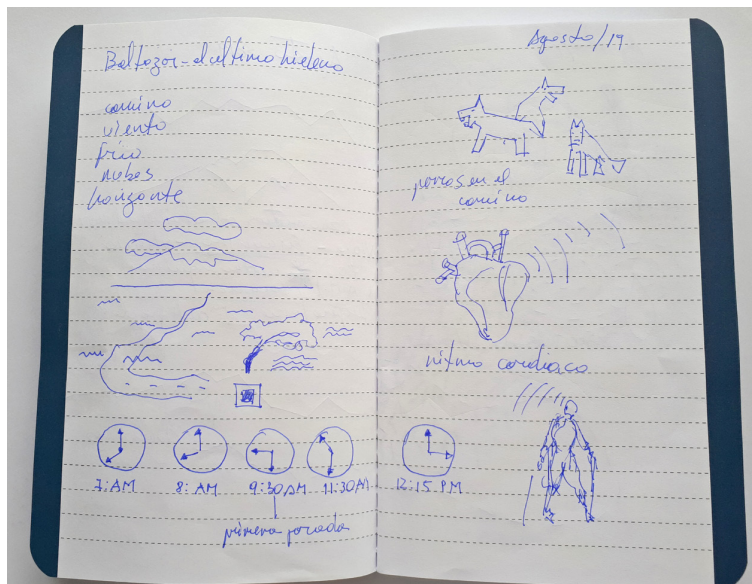 Baltazar - el ultimo hielero
camino
viento
frio
nubes
horizonte
7:AM
8:AM
9:30AM
11:30AM
primera parada
Agosto/19
perros en el
camino
ritmo cardiaco
12:15 PM